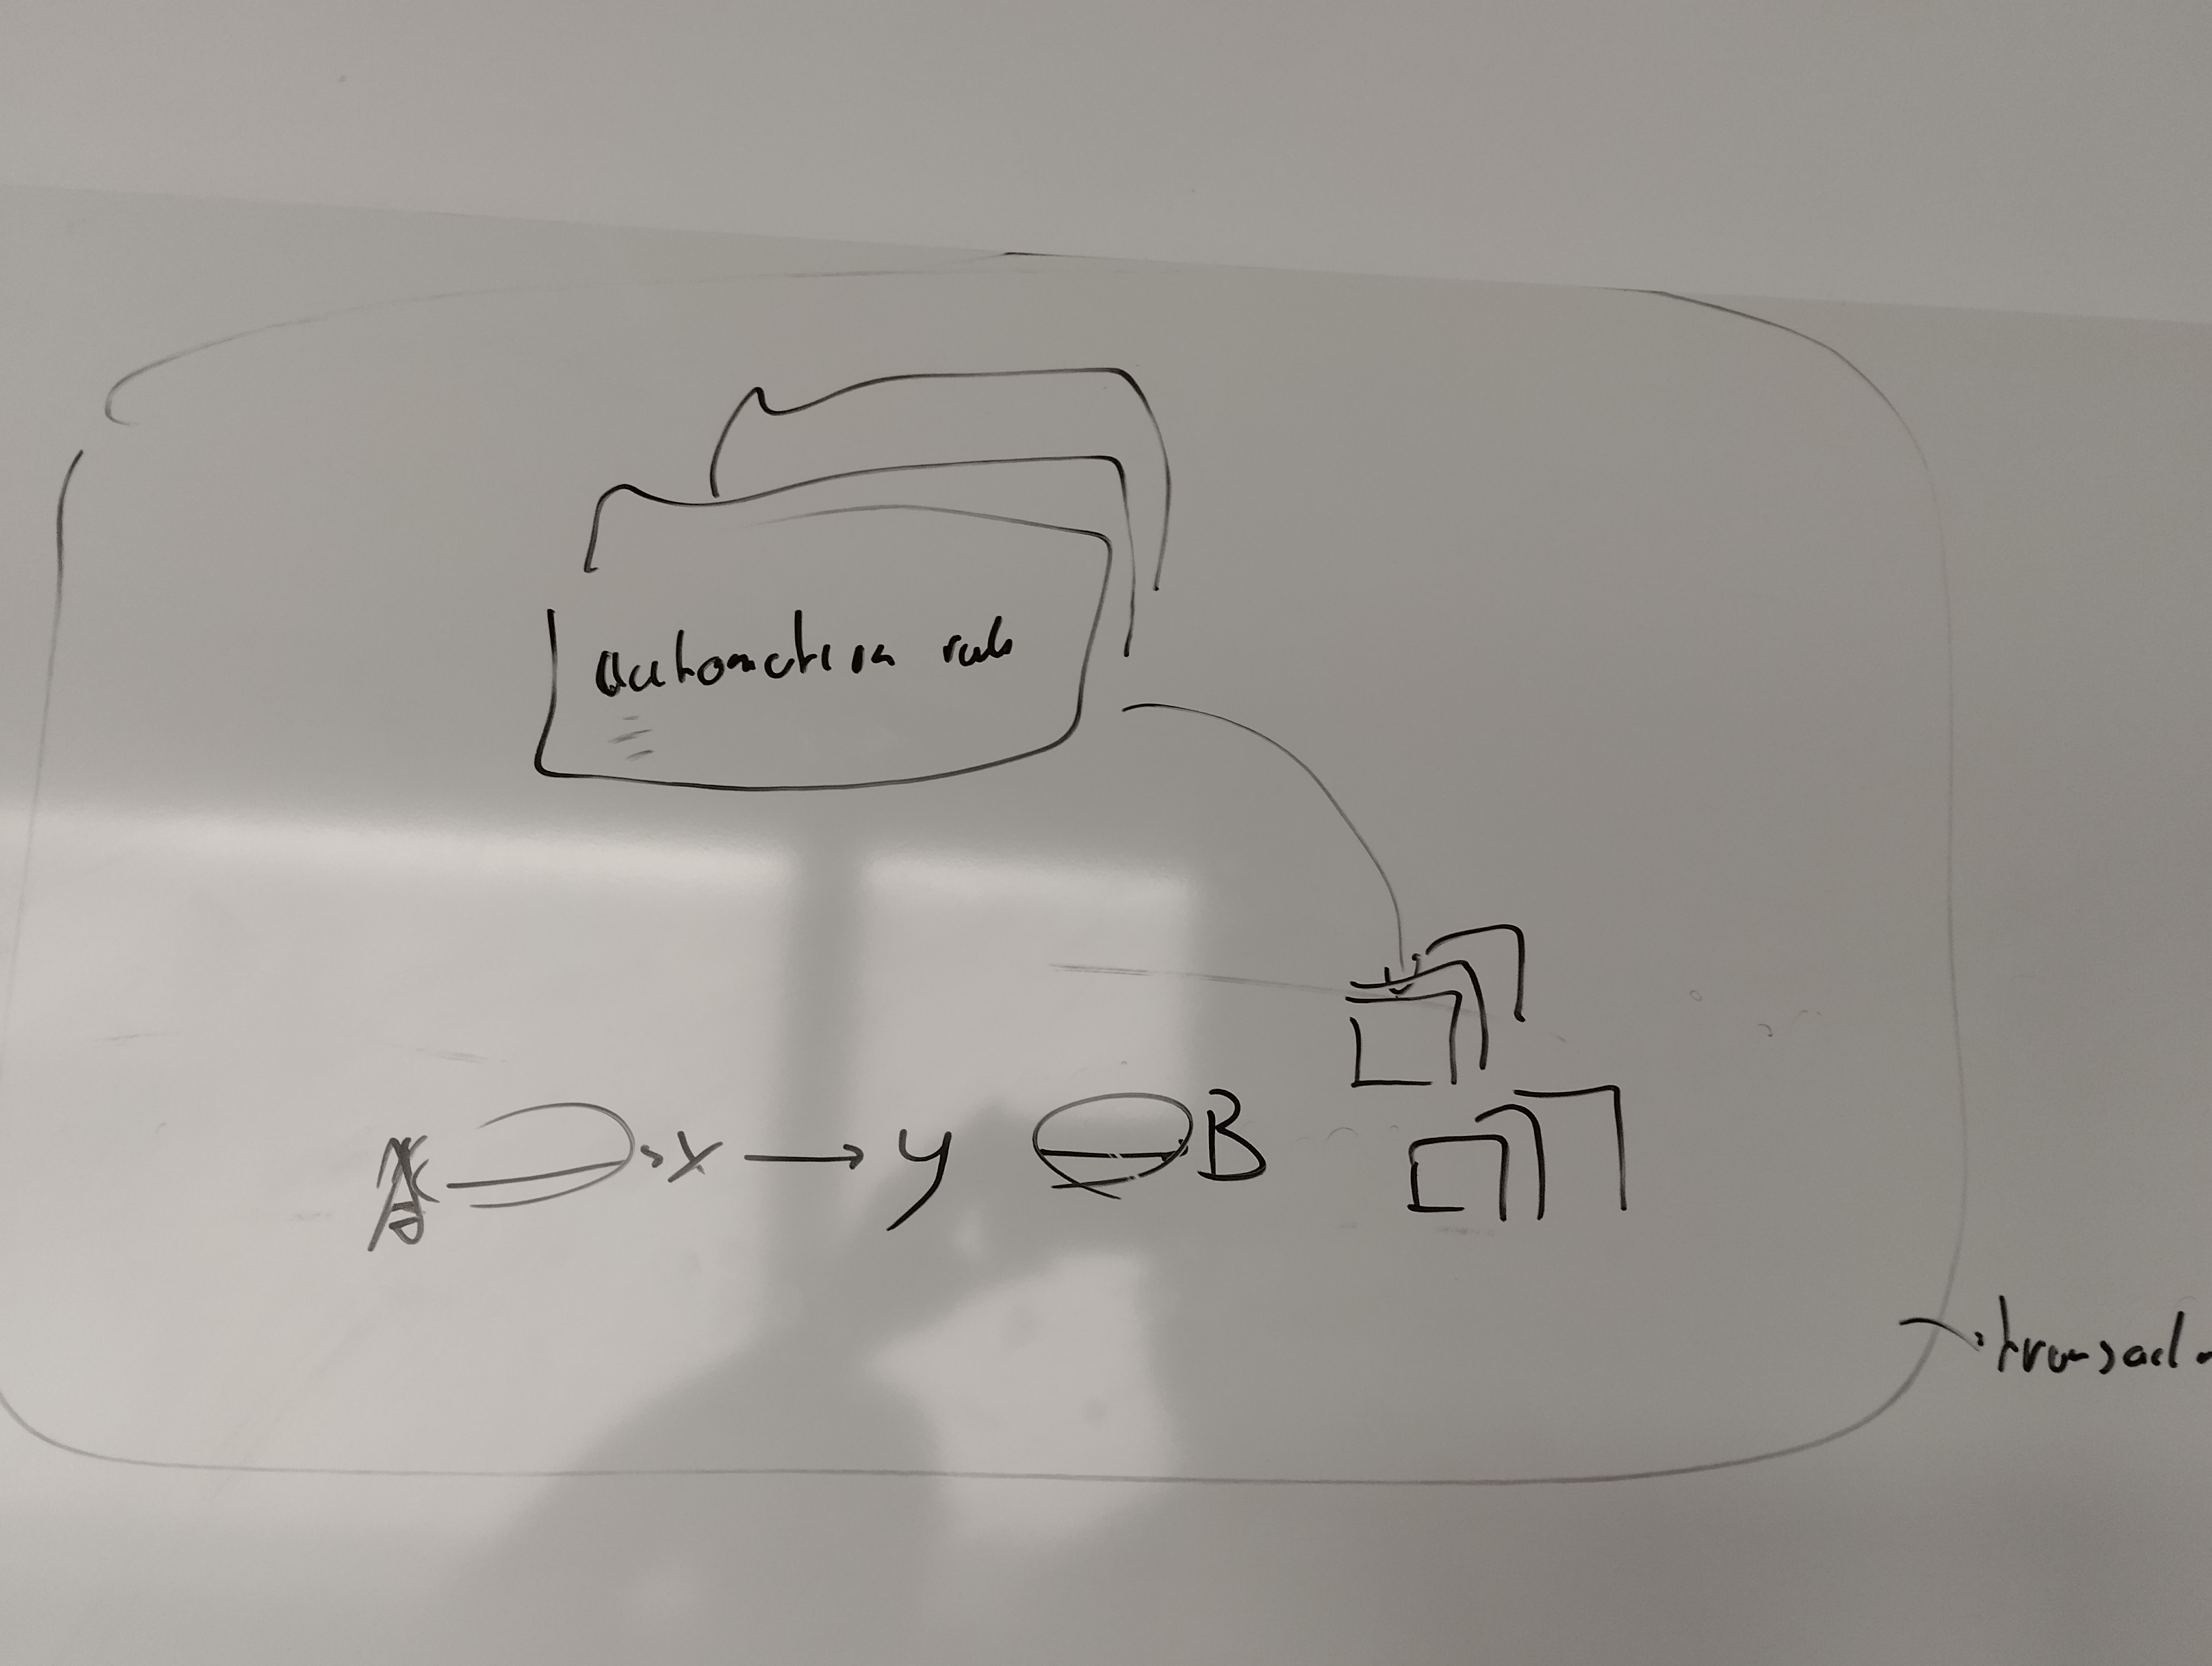 automation rule
A x → y B
transact